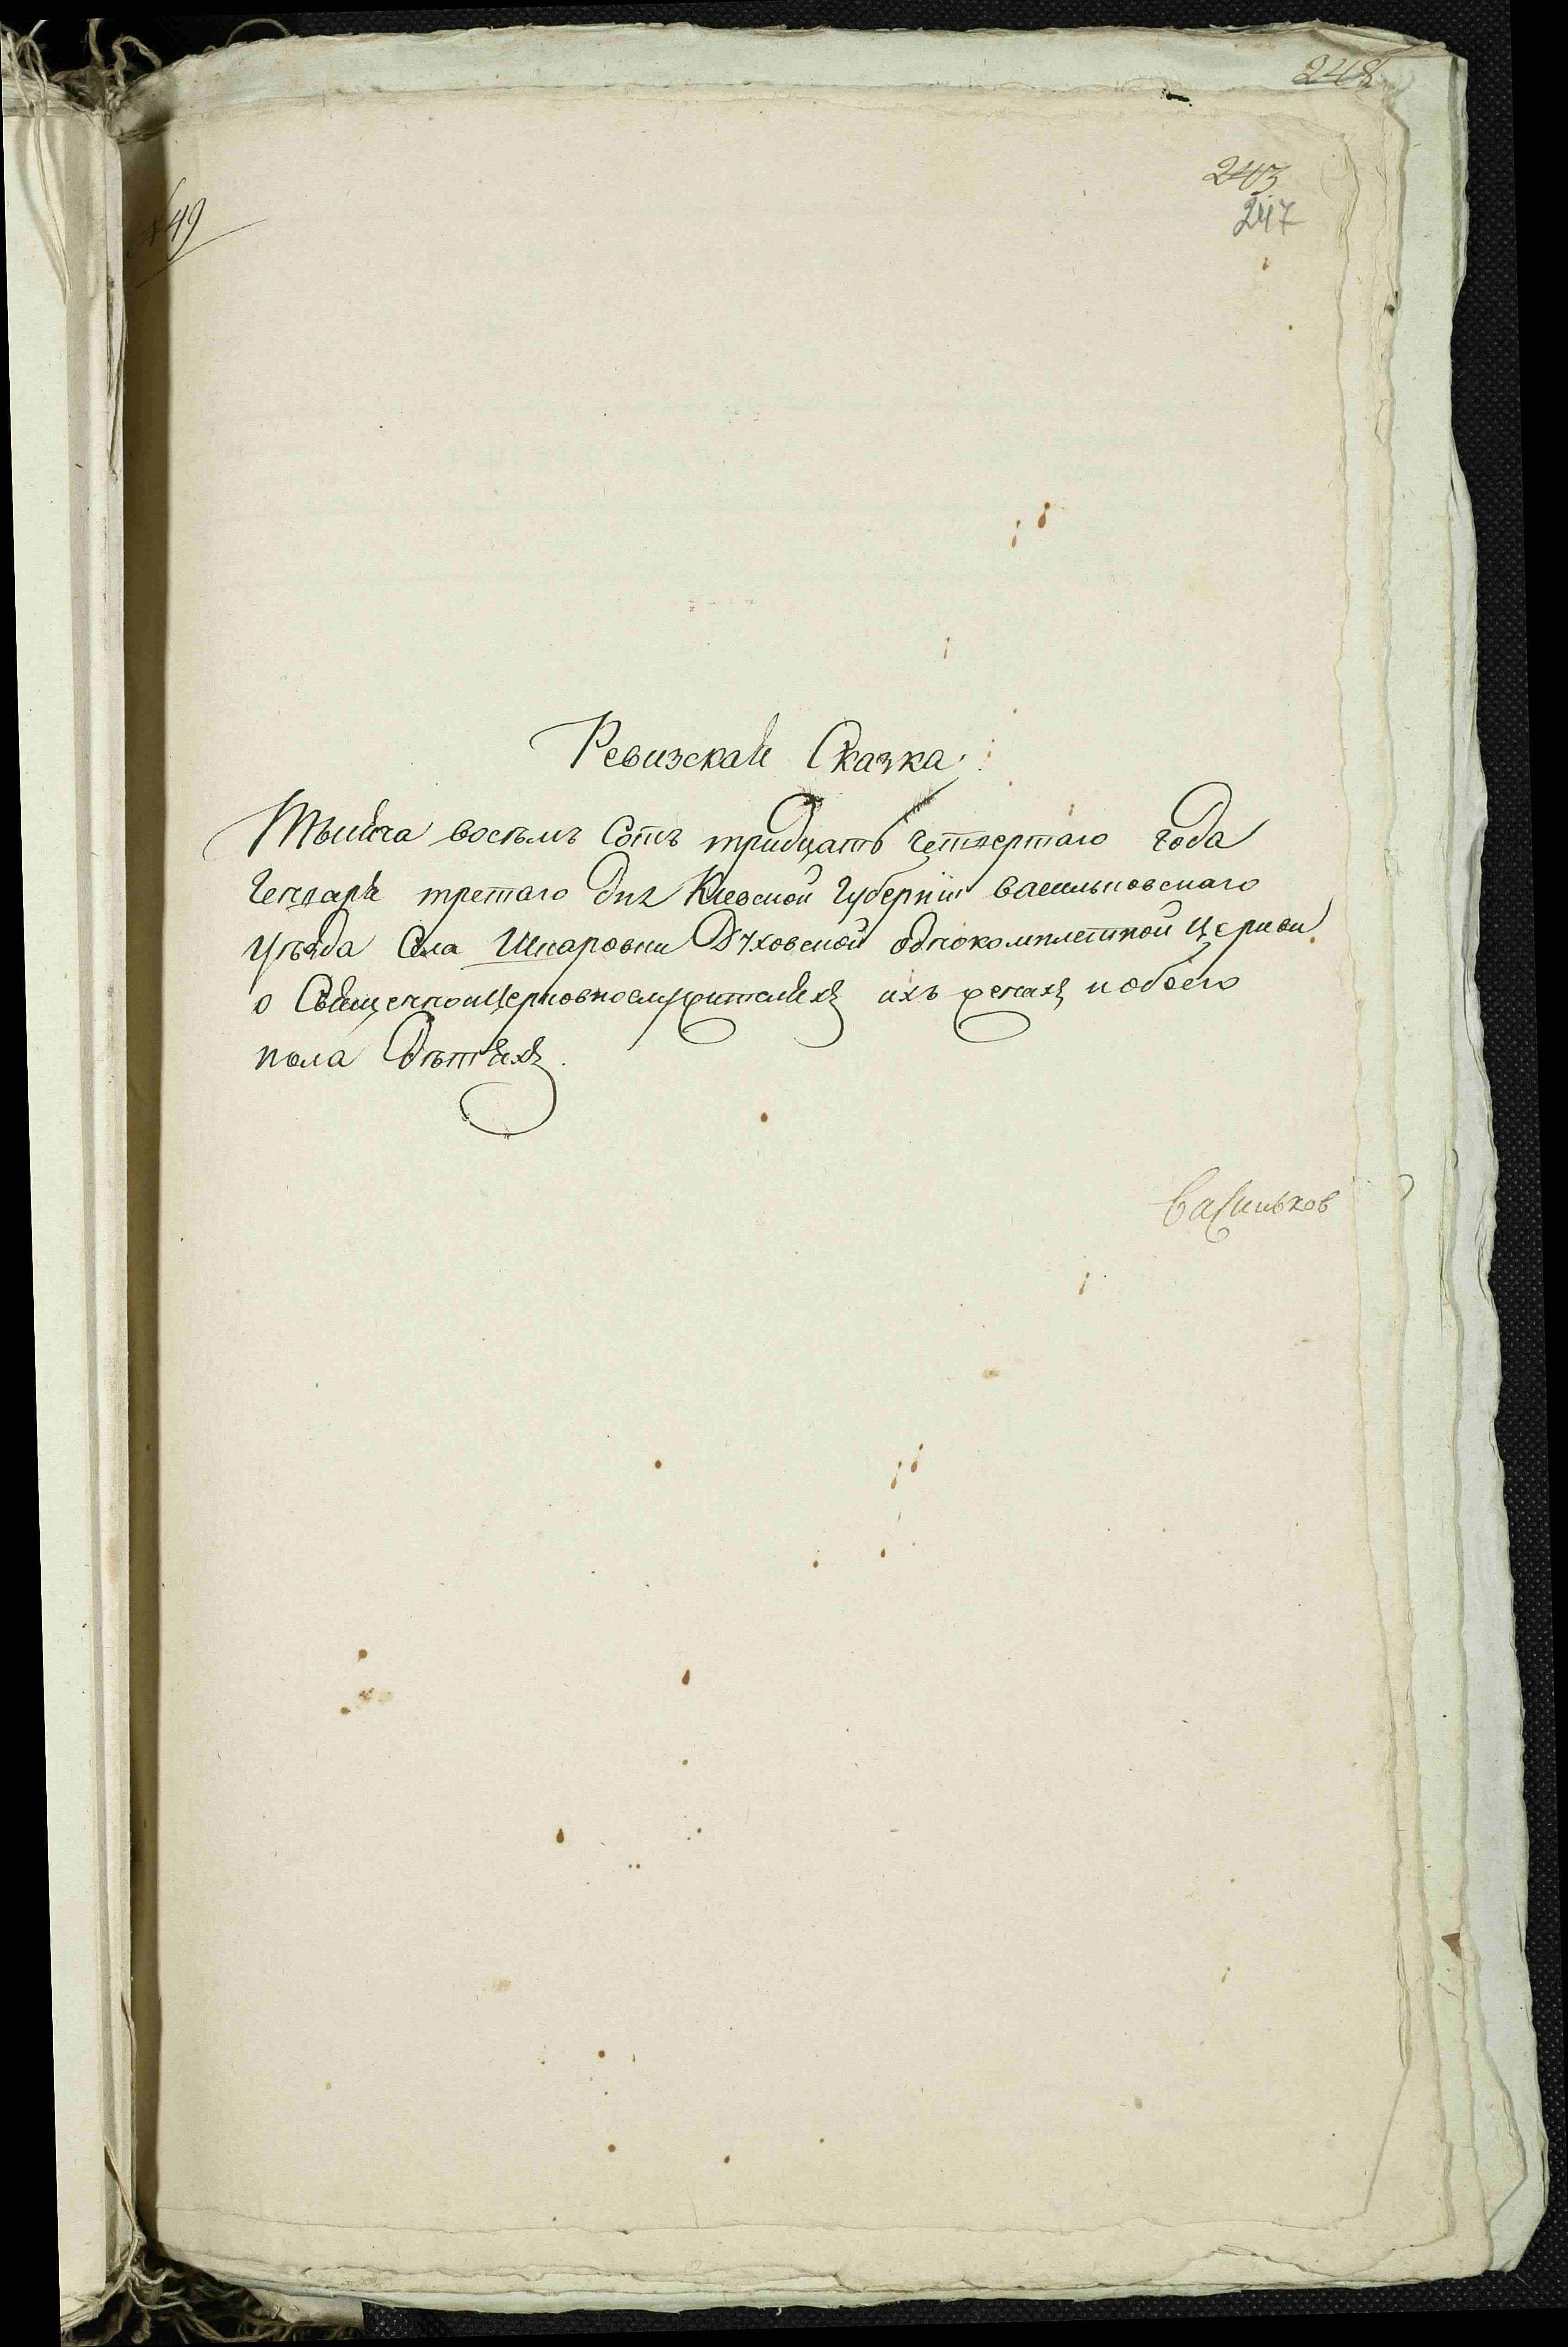 248
243
247
№ 49
Ревизская Сказка
Тысяча восемъ Сотъ тридцать четвертаго года
Генваря третаго дня Киевской Губернїи Васильковскаго
уѣзда Села Шкаровки Духовской однокомплетной Церкви
о Священноицерковнослужителяхъ ихъ женахъ и обоего
пола Дѣтяхъ.
Васильков